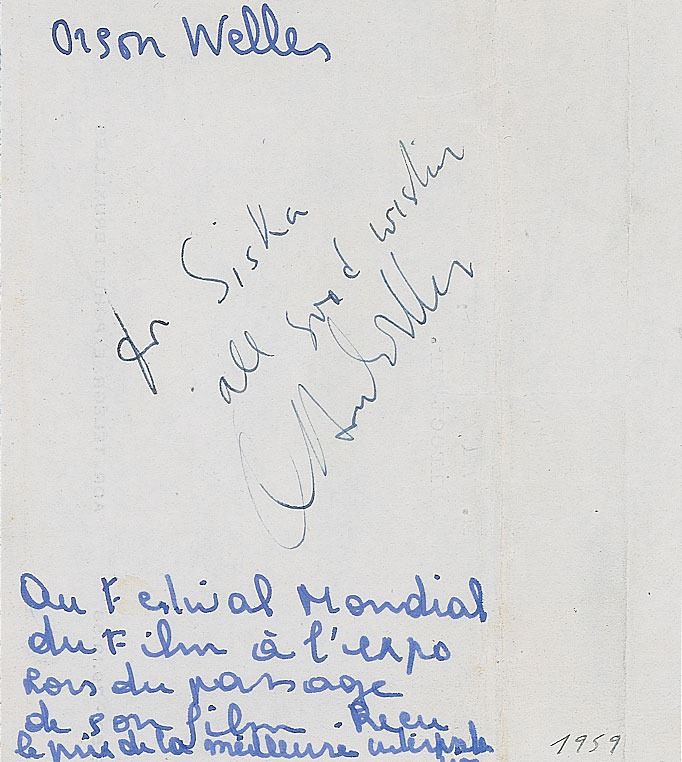 Orson Welles
for Siska
all good wishes
Orson Welles
Au Festival Mondial
du Film à l'expo
Lors du passage
de son film. Reçu
le prix de la meilleure
1959